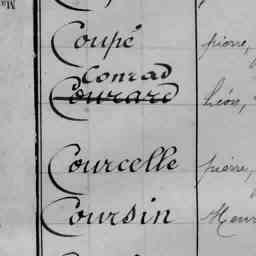 Coupé pierre,
Conrad
Courard Léon,
Courcelle pierre,
Coursin Henr